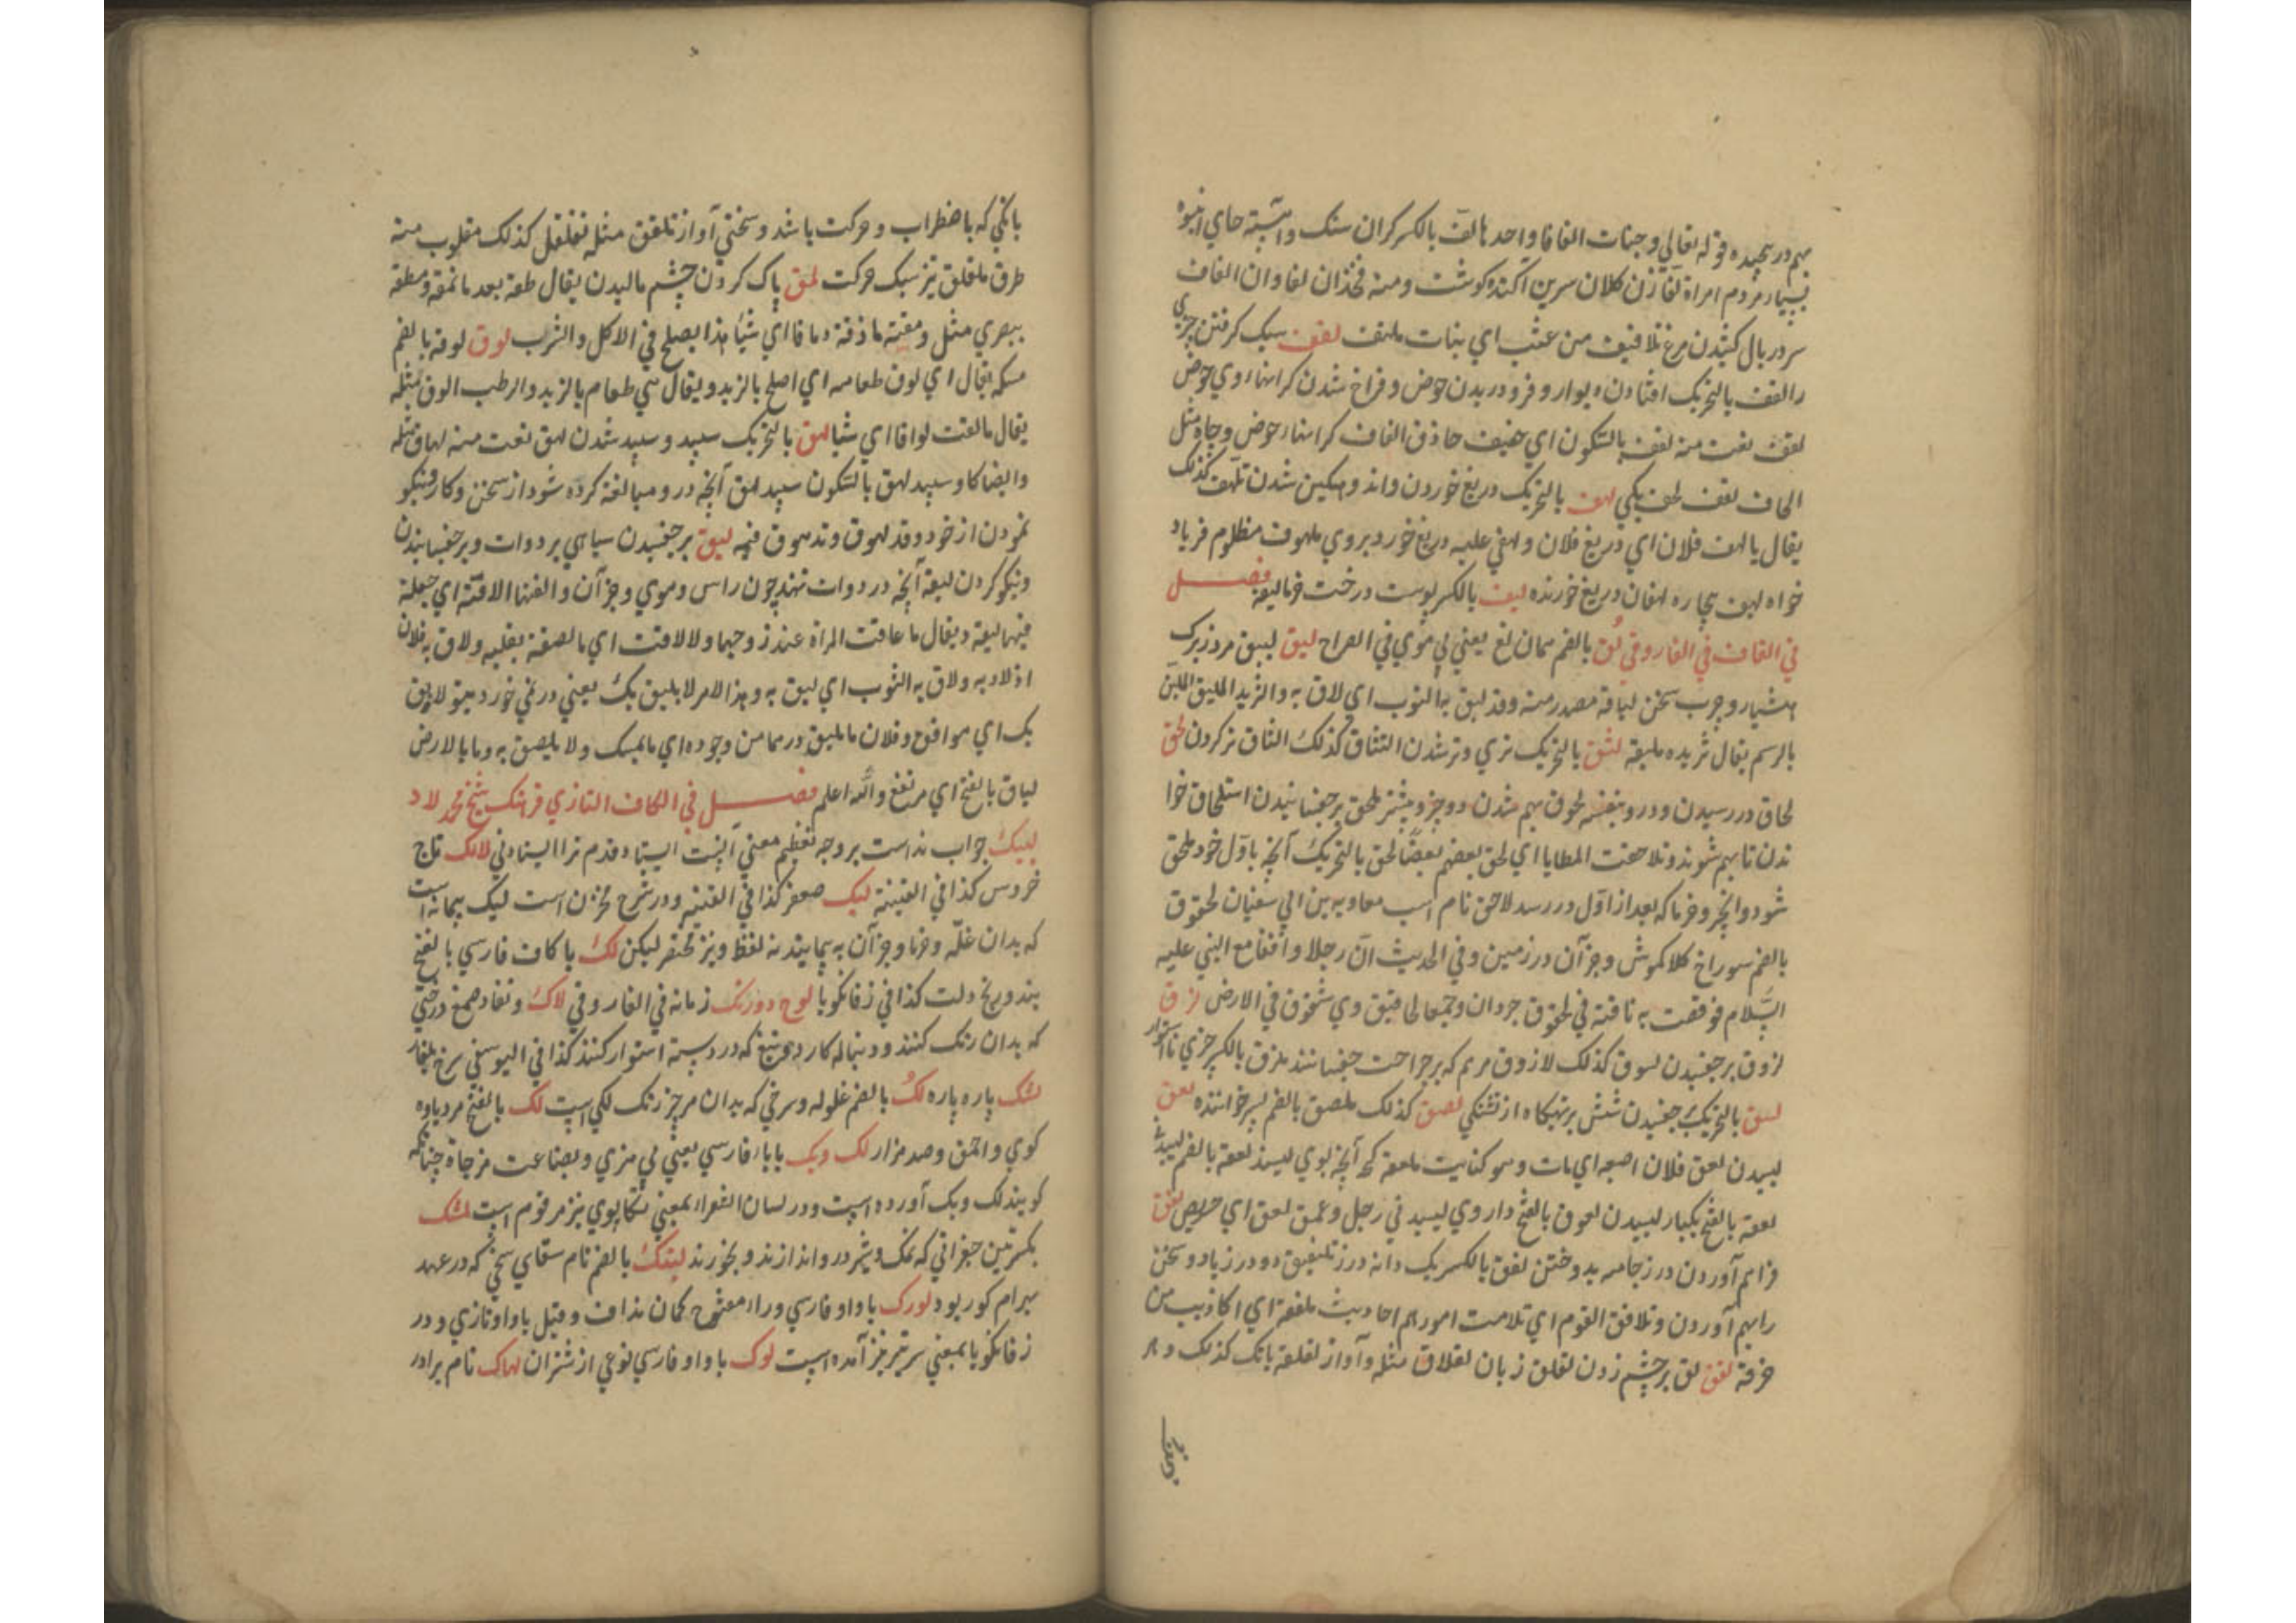 بهم در پیچیده قوله تعالی وجنات الفافا واحدها لف بالکسر کران سنک وآهسته جای انبوه
بسیار مردم امراة لفا زن کلان سرین آکنده کوشت ومنه فخذان لفاوان الفاف
سر در بال کشیدن مرغ تلافیف من عشب ای بنات ملتف لقف سبک کرفتن چیزی
را لقف بالتحریک افتادن دیوار و فرو دریدن حوض و فراخ شدن کرانهاء وی حوض
لقف نعت منه لقف بالسکون ای خفیف حاذق القاف کرانهاء حوض وچاه مثل
الحاف لقف لجف یکی لهف بالتحریک دریغ خوردن واندوهکین شدن تلهف کذلک
یقال یا لهف فلان ای دریغ فلان ولهفی علیه دریغ خورد بروی ملهوف مظلوم فریاد
خواه لهیف بیچاره لهفان دریغ خورنده لیف بالکسر پوست درخت خرما لیفه فصل
فی القاف فی الفاروقی لق بالضم همان لغ یعنی بی موی فی الصراح لبق لبیق مرد زیرک
هشیار وچرب سخن لباقة مصدر منه وقد لبق به الثوب ای لاق به والثرید الملبق اللین
بالدسم یقال ثریده ملبقة لثق بالتحریک تری وتر شدن التثاق کذلک الثاق تر کردن لحق
لحاق در رسیدن ودرو بنفسه لحوق بهم شدن دو چیز وبیشتر ملحق برچفسانیدن استلحاق خوا
ندن تا بهم شوند وتلاحقت المطایا ای لحق بعضهم بعضا لحق بالتحریک آنچه باول خود ملحق
شود وانجیر وخرما که بعد از اول در رسد لاحق نام اسب معاویه بن ابی سفیان لخقوق
بالضم سوراخ کلاکموش وجز آن در زمین وفی الحدیث ان رجلا واقفا مع النبی علیه
السلام فوقصت به ناقته فی لخقوق جردان وجمعها لخاقیق وی شقوق فی الارض لزق
لزوق برچفسیدن لسوق کذلک لازوق مرهم که بر جراحت چفسانند ملزق بالکسر چیزی نااستوار
لسق بالتحریک چفسیدن شش بر تهیکاه از تشنکی لصق کذلک ملصق بالضم پسر خوانده لعق
لیسیدن لعق فلان اصبعه ای مات وهو کنایت ملعقة کمچه آنچه بوی لیسند لعقة بالضم لیسیدنی
لعقة بالفتح یکبار لیسیدن لعوق بالفتح داروی لیسیدنی رجل وعق لعق ای حریص لفق
فراهم آوردن درز جامه بدوختن لفق بالکسر یک دانه درز تلفیق دو درز یا دو سخن
را بهم آوردن وتلافق القوم ای تلامت امورهم احادیث ملفقة ای اکاذیب من
خرقة لقق لق بر چشم زدن لقلق زبان لقلاق مثله وآواز لقلقة بانک کذلک وهر
بانکی که با ضطراب و حرکت باشد و سختی آواز تلقلق مثله تقلقل کذلک مقلوب منه
طرق ملقلق تیز سبک حرکت لمق پاک کردن چشم مالیدن یقال طعه بعد ما نمقه ولمقه
ببصری مثل ومقته ما ذقت لماقا ای شیئا هذا یصلح فی الاکل والشرب لوق لوقة بالضم
مسکه یقال ای لوق طعامه ای اصلح بالزبد ویقال هی طعام بالزبد والرطب الوق مثله
یقال ما لقت لواقا ای شیئا لهق بالتحریک سپید و سپید شدن لهق نعت منه لهاق مثله
وایضا کاو سپید لهق بالسکون سپید لهق آنچه درو مبالغه کرده شود از سخن وکار ونیکو
نمودن از خود وقد لهوق وتدهوق فیه لیق برچفسیدن سیاهی بر دوات وبرچفسانیدن
ونیکو کردن لیقة آنچه در دوات نهند چون راس وموی وجز آن والقتها الاقة ای جعلت
فیها لیقة ویقال ما عاقت المراة عند زوجها ولا لاقت ای ما لصقت بقلبه ولاق به فلان
اذ لاذ به ولاق به الثوب ای لبق به وهذا الامر لا یلیق بک یعنی در نمی خورد بتو لا یلیق
بک ای موافق وفلان ما یلیق درهما من وجوده ای ما یمسک ولا یلصق به وما بالارض
لیاق بالفتح ای مرتفع والله اعلم فصل فی الکاف التازی فرهنک شیخ محمد لاد
لبیک جواب نداست بر وجه تعظیم معنی آنست ایستاده ام ترا ایستادنی لالک تاج
خروس کذا فی القنیة لیک صعفر کذا فی القنیه ودر شرح مخزن است لیک پیمانه است
که بدان غله وخرما وجز آن به پیمایند نه لفظ ونیز مختصر لیکن لک با کاف فارسی بالفتح
بند ورنج دلت کذا فی زفانکویا لوح دورنک زمانه فی الفاروقی لاک ونقاد صمغ درختی
که بدان رنک کنند ودنباله کارد وتیغ که در دسته استوار کنند کذا فی الیوسفی سرخ بلغار
لنک پاره پاره لک بالضم غلوله وسرخی که بدان مرجز رنک لکی است لک بالفتح مرد یاوه
کوی واحمق وصد هزار لک وپک با باء فارسی یعنی بی مزی وبضاعت مزجاة چنانکه
کویند لک وپک آورده است ودر لسان الشعراء بمعنی تکاپوی نیز مرقوم است لشک
بکسرتین جغراتی که نمک وشیر درو اندازند وبخورند لنبک بالضم نام سقای سخی که در عهد
بهرام کور بود لورک با واو فارسی وراء مفتوح کمان نداف وقیل با واو تازی ودر
زفانکویا بمعنی سرتیر نیز آمده است لوک با واو فارسی نوعی از شتران لهاک نام برادر